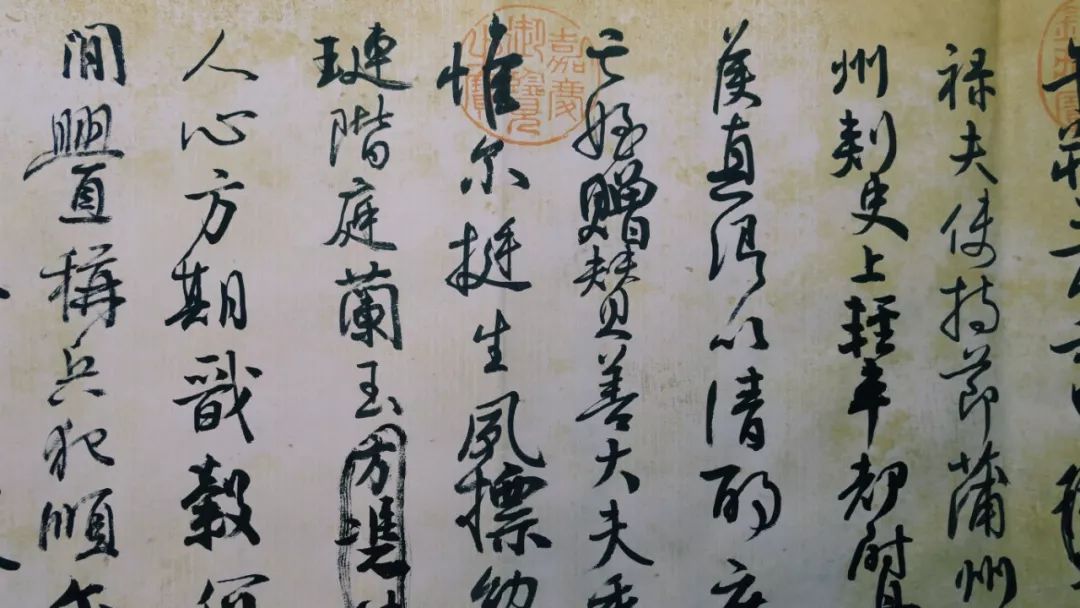 禄夫使持節蒲州
州刺史上輕車都尉
侯真卿以清酌庶
亡姪贈贊善大夫季
惟尔挺生夙標幼
璉階庭蘭玉方憑
人心方期戩穀何
間舋稱兵犯順
嘉慶御覽之寶